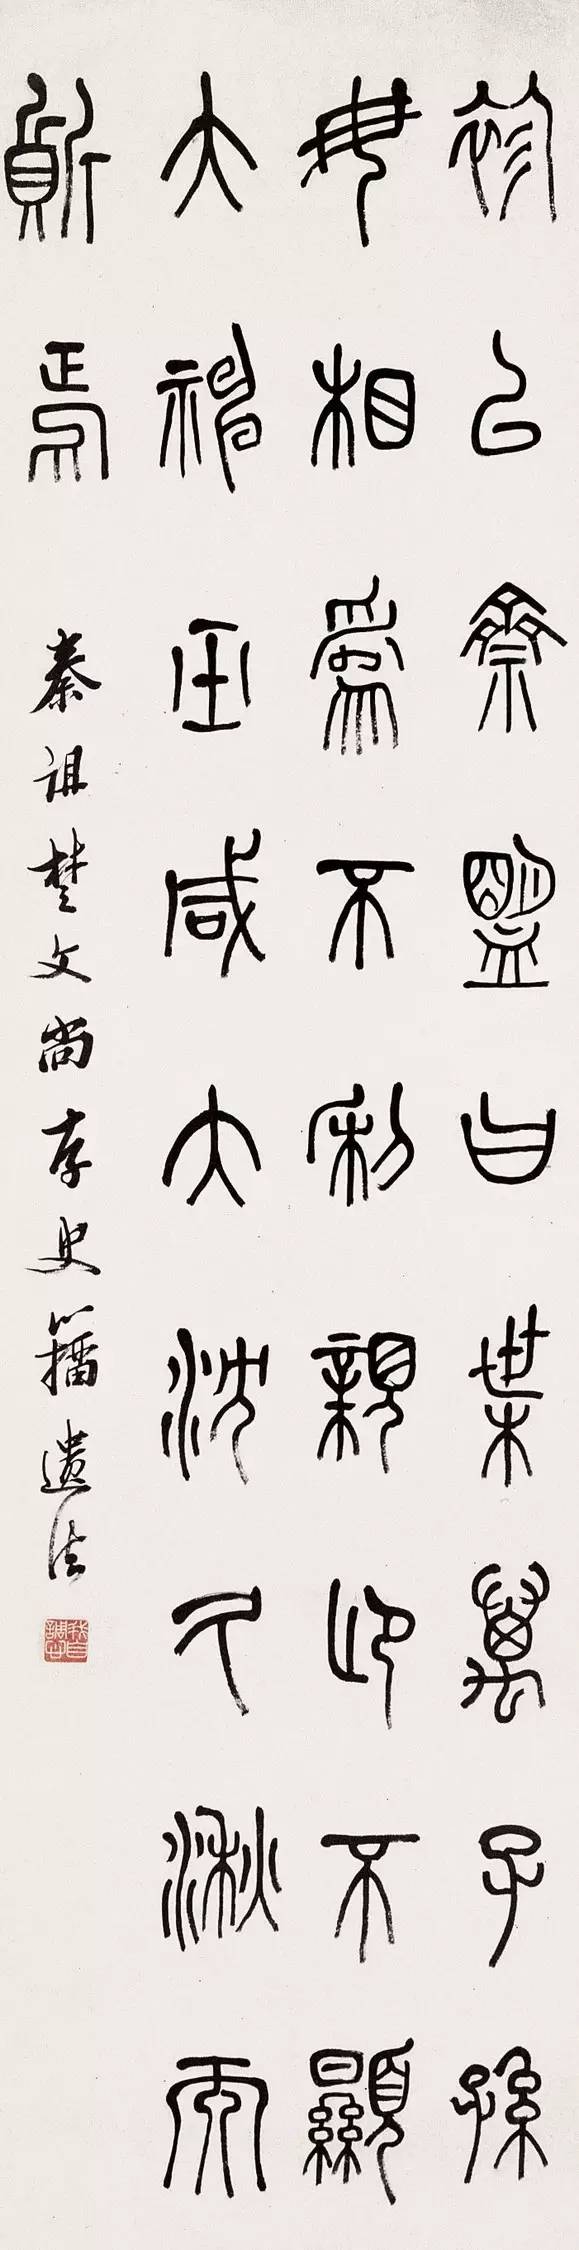 袗以齋盟曰枼萬子孫
毋相爲不利親卬不顯
大神巫咸大沈久湫而
質焉
秦詛楚文尚存史籀遺法